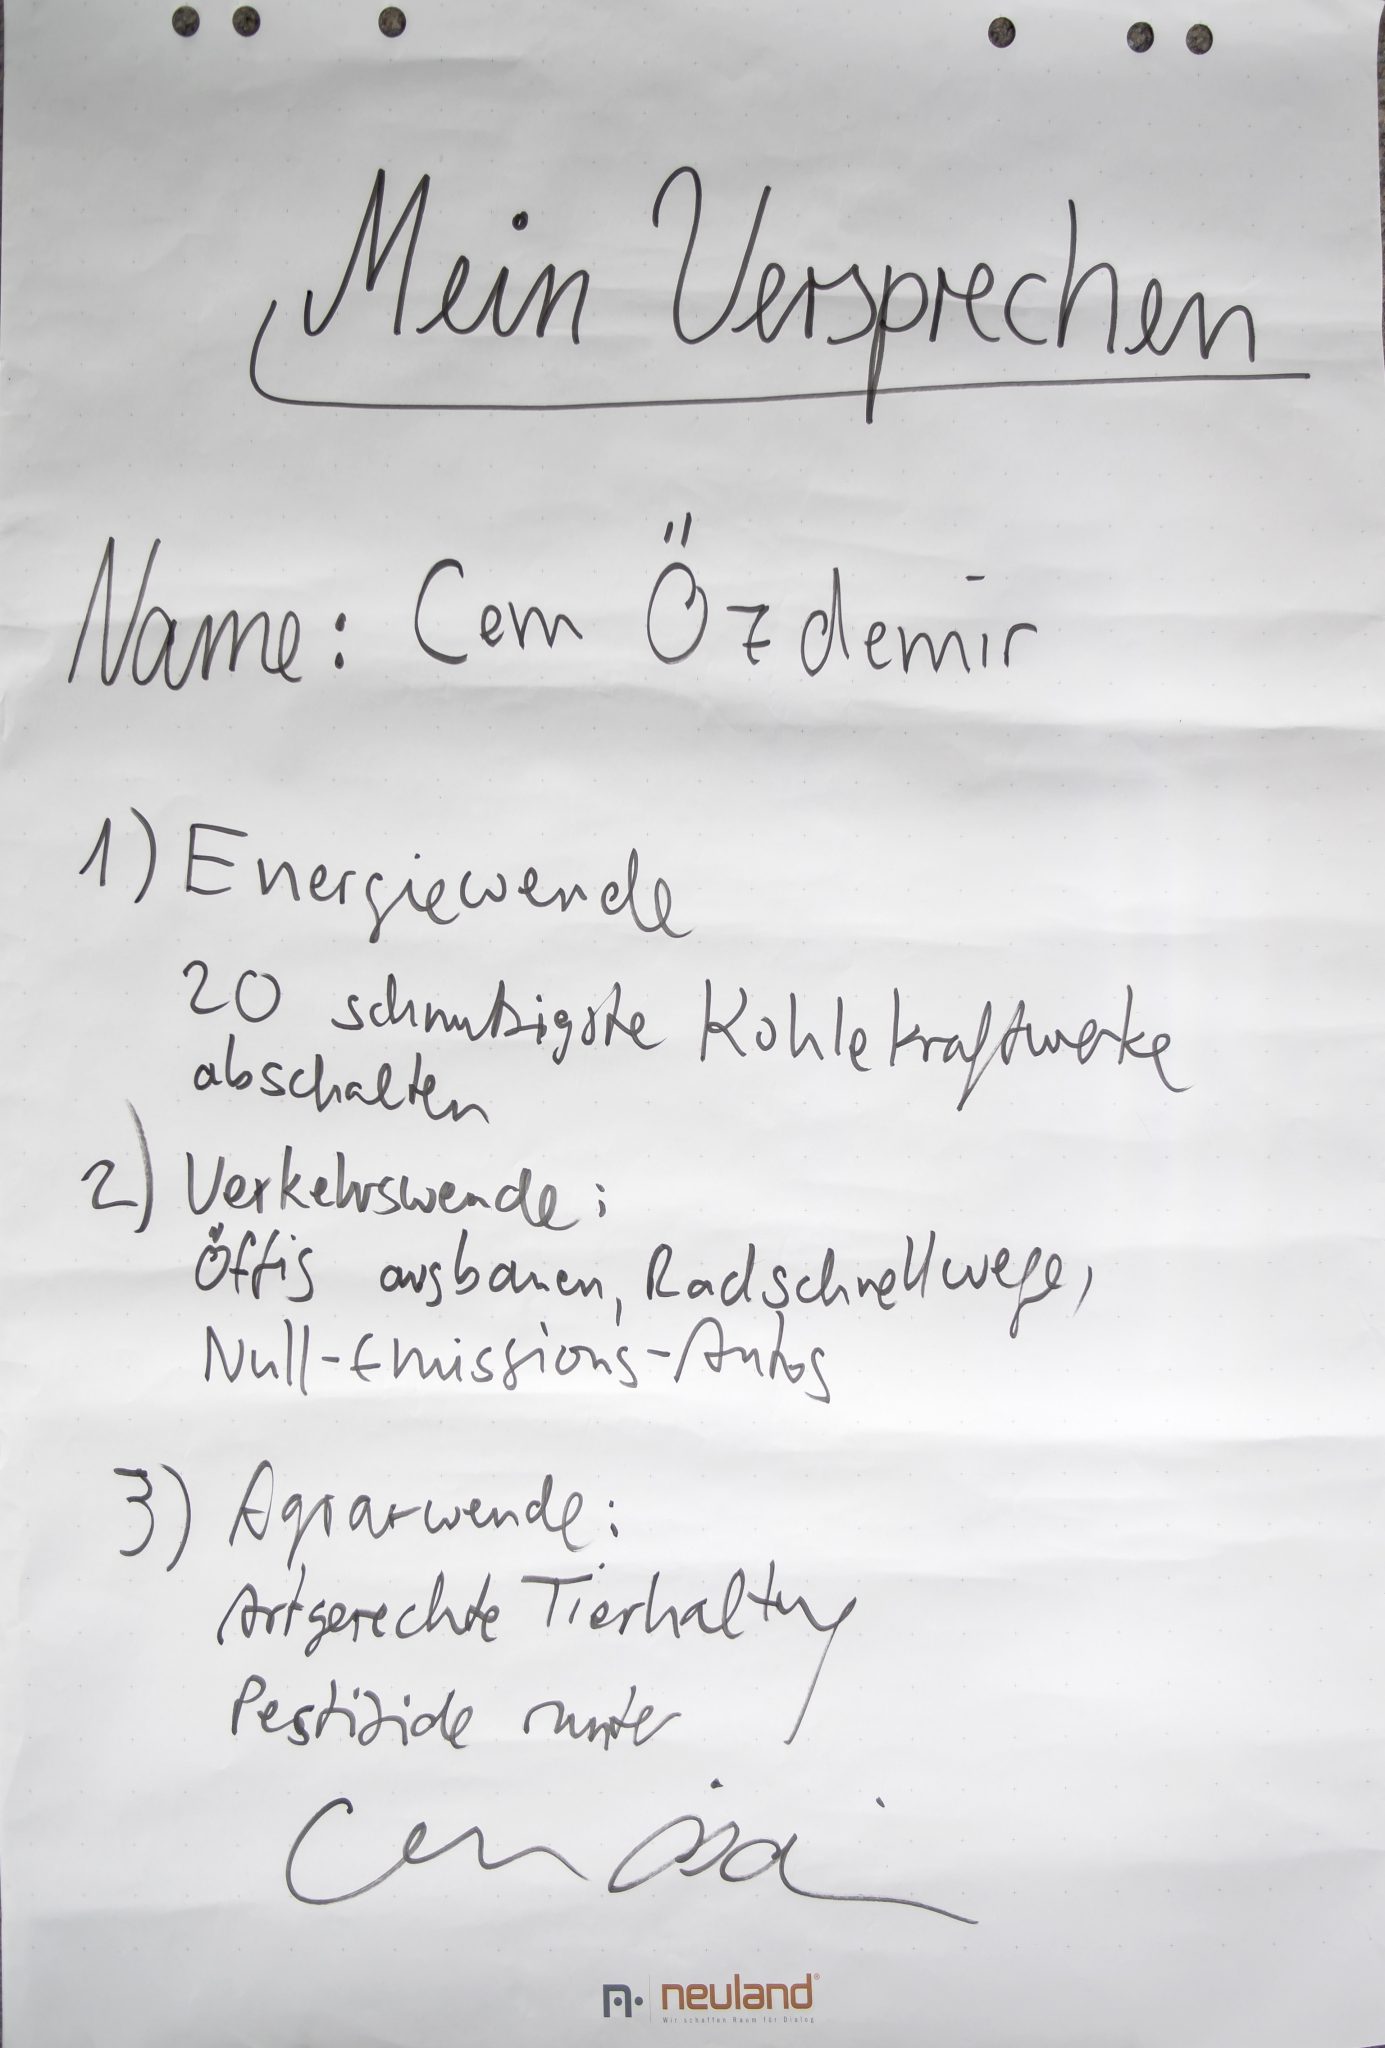 Mein Versprechen
Name: Cem Özdemir
1) Energiewende
20 schmutzigste Kohlekraftwerke
abschalten
2) Verkehrswende:
Öffis ausbauen, Radschnellwege,
Null-Emissions-Autos
3) Agrarwende:
Artgerechte Tierhaltung
Pestizide runter
Cem
neuland®
Wir schaffen Raum für Dialog